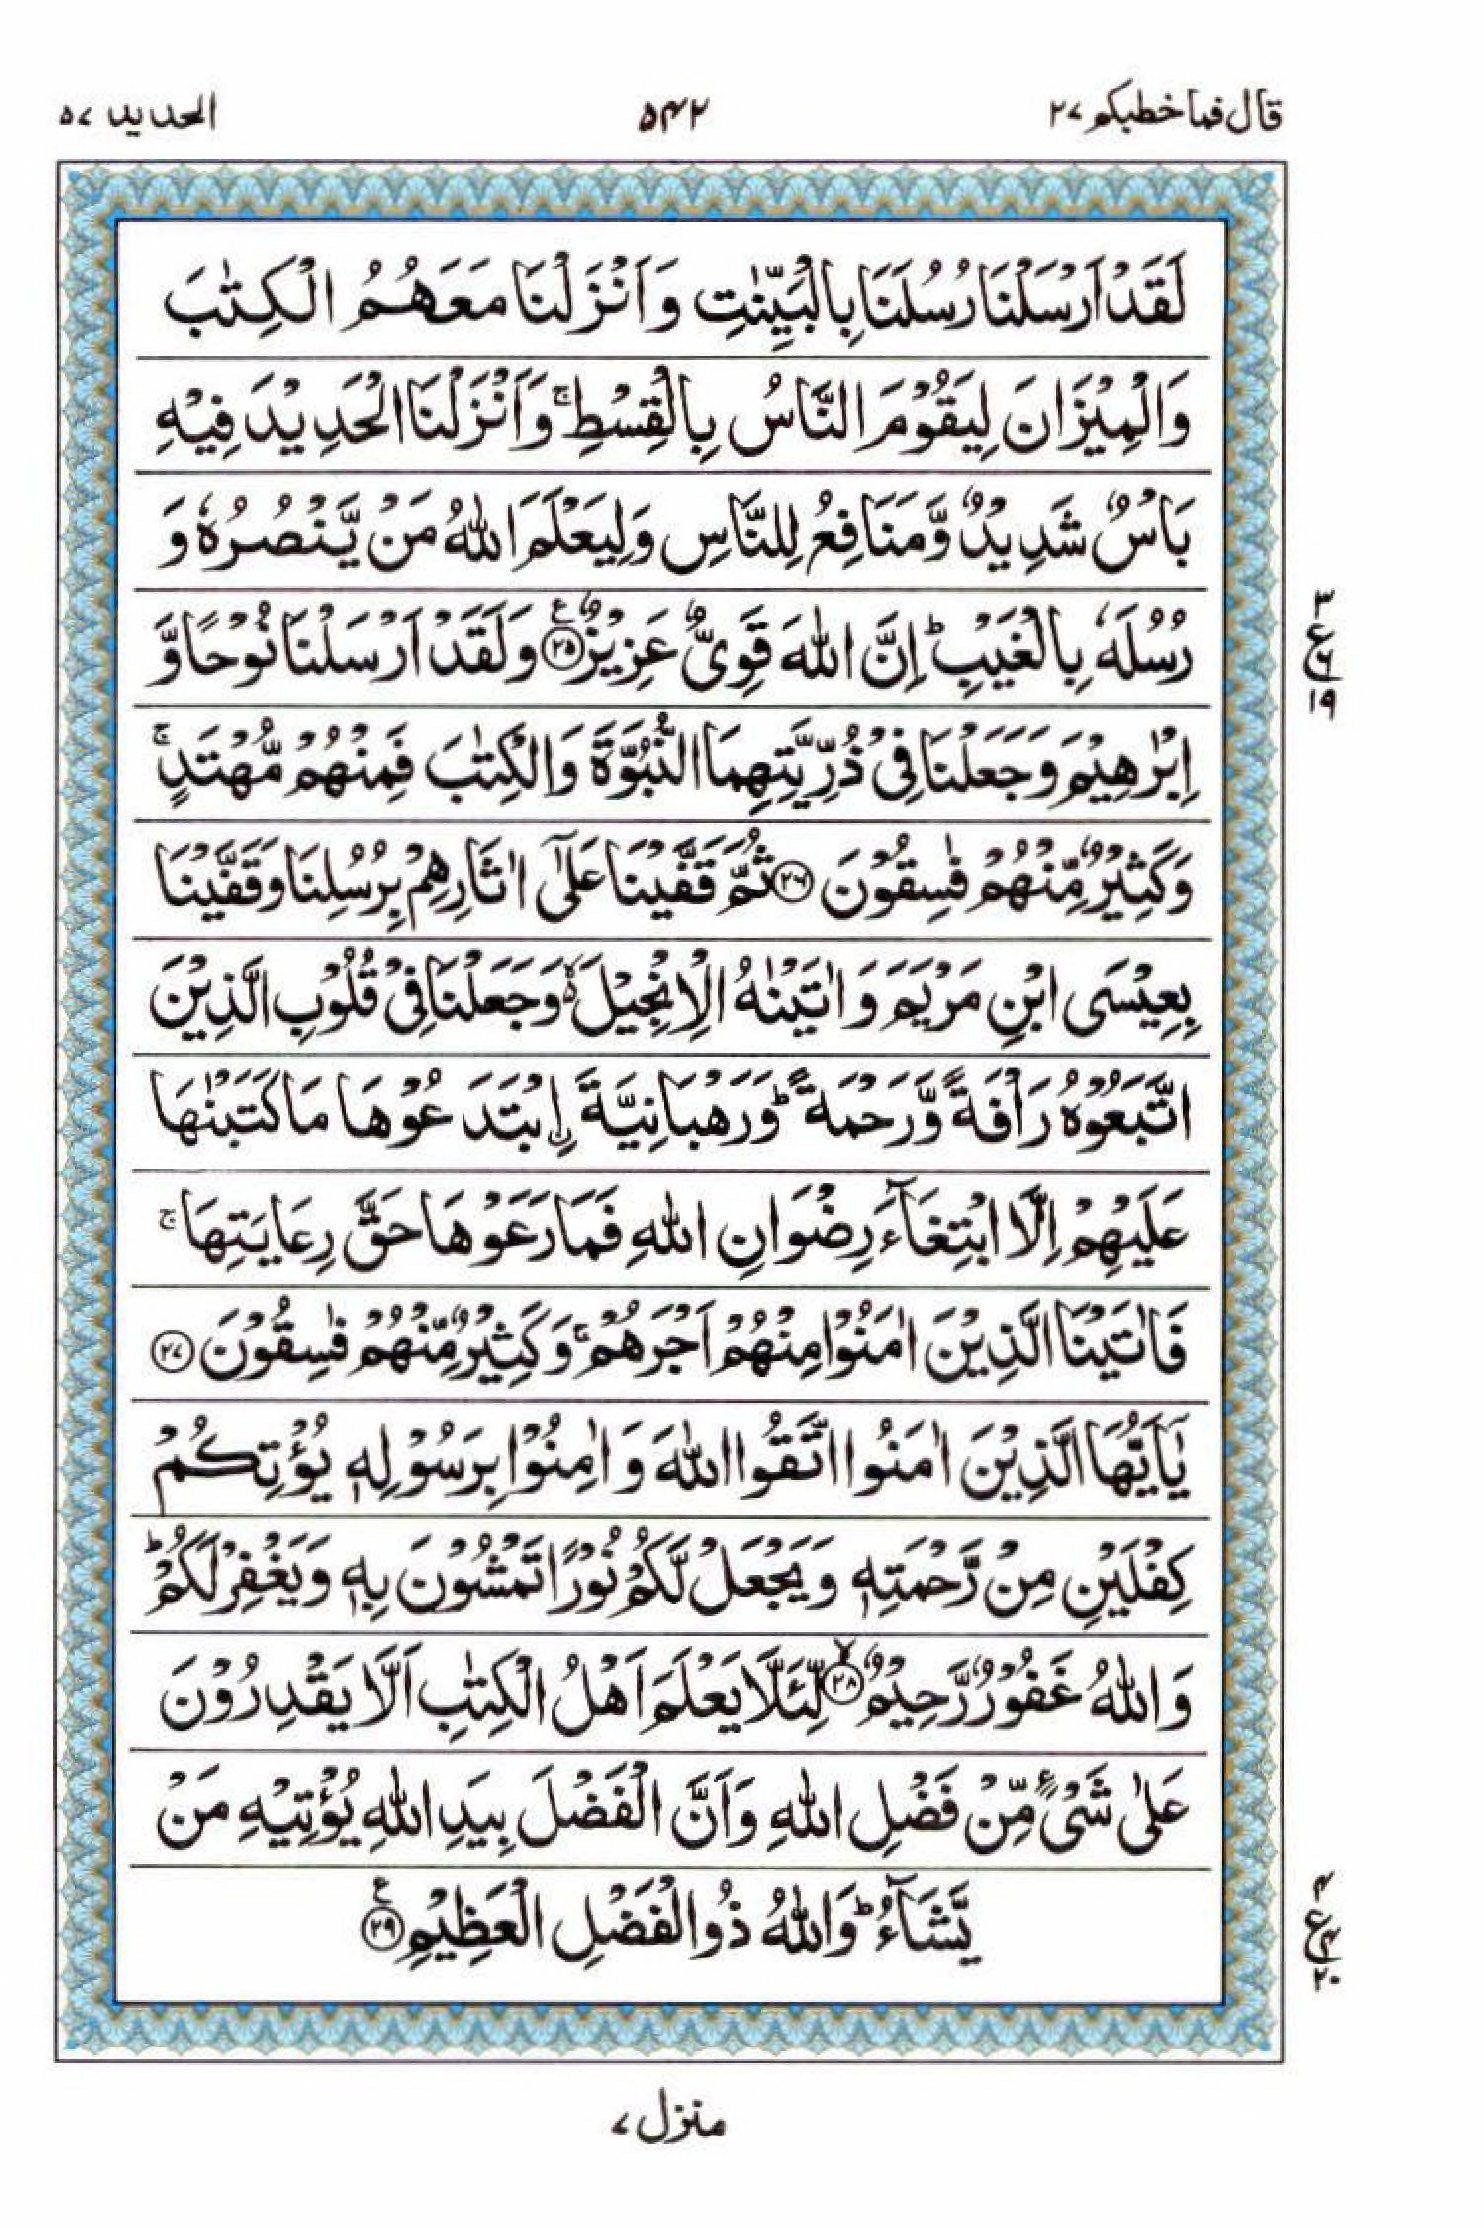 قال فما خطبکم ۲۷ ۵۴۲ الحدید ۵۷
لَقَدْ اَرْسَلْنَا رُسُلَنَا بِالْبَیِّنٰتِ وَاَنْزَلْنَا مَعَهُمُ الْکِتٰبَ
وَالْمِیْزَانَ لِیَقُوْمَ النَّاسُ بِالْقِسْطِ ۚ وَاَنْزَلْنَا الْحَدِیْدَ فِیْهِ
بَاْسٌ شَدِیْدٌ وَّمَنَافِعُ لِلنَّاسِ وَلِیَعْلَمَ اللّٰهُ مَنْ یَّنْصُرُهٗ وَ
رُسُلَهٗ بِالْغَیْبِ ؕ اِنَّ اللّٰهَ قَوِیٌّ عَزِیْزٌ ﴿۲۵﴾ وَلَقَدْ اَرْسَلْنَا نُوْحًا وَّ
۳
ع
۶
۱۹
اِبْرٰهِیْمَ وَجَعَلْنَا فِیْ ذُرِّیَّتِهِمَا النُّبُوَّةَ وَالْکِتٰبَ فَمِنْهُمْ مُّهْتَدٍ ۚ
وَکَثِیْرٌ مِّنْهُمْ فٰسِقُوْنَ ﴿۲۶﴾ ثُمَّ قَفَّیْنَا عَلٰٓی اٰثَارِهِمْ بِرُسُلِنَا وَقَفَّیْنَا
بِعِیْسَی ابْنِ مَرْیَمَ وَاٰتَیْنٰهُ الْاِنْجِیْلَ ۙ وَجَعَلْنَا فِیْ قُلُوْبِ الَّذِیْنَ
اتَّبَعُوْهُ رَاْفَةً وَّرَحْمَةً ؕ وَرَهْبَانِیَّةَ ۨ ابْتَدَعُوْهَا مَا کَتَبْنٰهَا
عَلَیْهِمْ اِلَّا ابْتِغَآءَ رِضْوَانِ اللّٰهِ فَمَا رَعَوْهَا حَقَّ رِعَایَتِهَا ۚ
فَاٰتَیْنَا الَّذِیْنَ اٰمَنُوْا مِنْهُمْ اَجْرَهُمْ ۚ وَکَثِیْرٌ مِّنْهُمْ فٰسِقُوْنَ ﴿۲۷﴾
یٰۤاَیُّهَا الَّذِیْنَ اٰمَنُوا اتَّقُوا اللّٰهَ وَاٰمِنُوْا بِرَسُوْلِهٖ یُؤْتِکُمْ
کِفْلَیْنِ مِنْ رَّحْمَتِهٖ وَیَجْعَلْ لَّکُمْ نُوْرًا تَمْشُوْنَ بِهٖ وَیَغْفِرْ لَکُمْ ؕ
وَاللّٰهُ غَفُوْرٌ رَّحِیْمٌ ﴿۲۸﴾ ۙ لِّئَلَّا یَعْلَمَ اَهْلُ الْکِتٰبِ اَلَّا یَقْدِرُوْنَ
عَلٰی شَیْءٍ مِّنْ فَضْلِ اللّٰهِ وَاَنَّ الْفَضْلَ بِیَدِ اللّٰهِ یُؤْتِیْهِ مَنْ
یَّشَآءُ ؕ وَاللّٰهُ ذُوالْفَضْلِ الْعَظِیْمِ ﴿۲۹﴾
۴
ع
۴
۲۰
منزل ۷